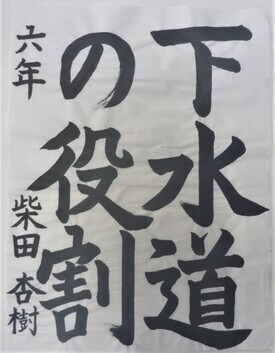 下水道
の役割
六年 柴田杏樹